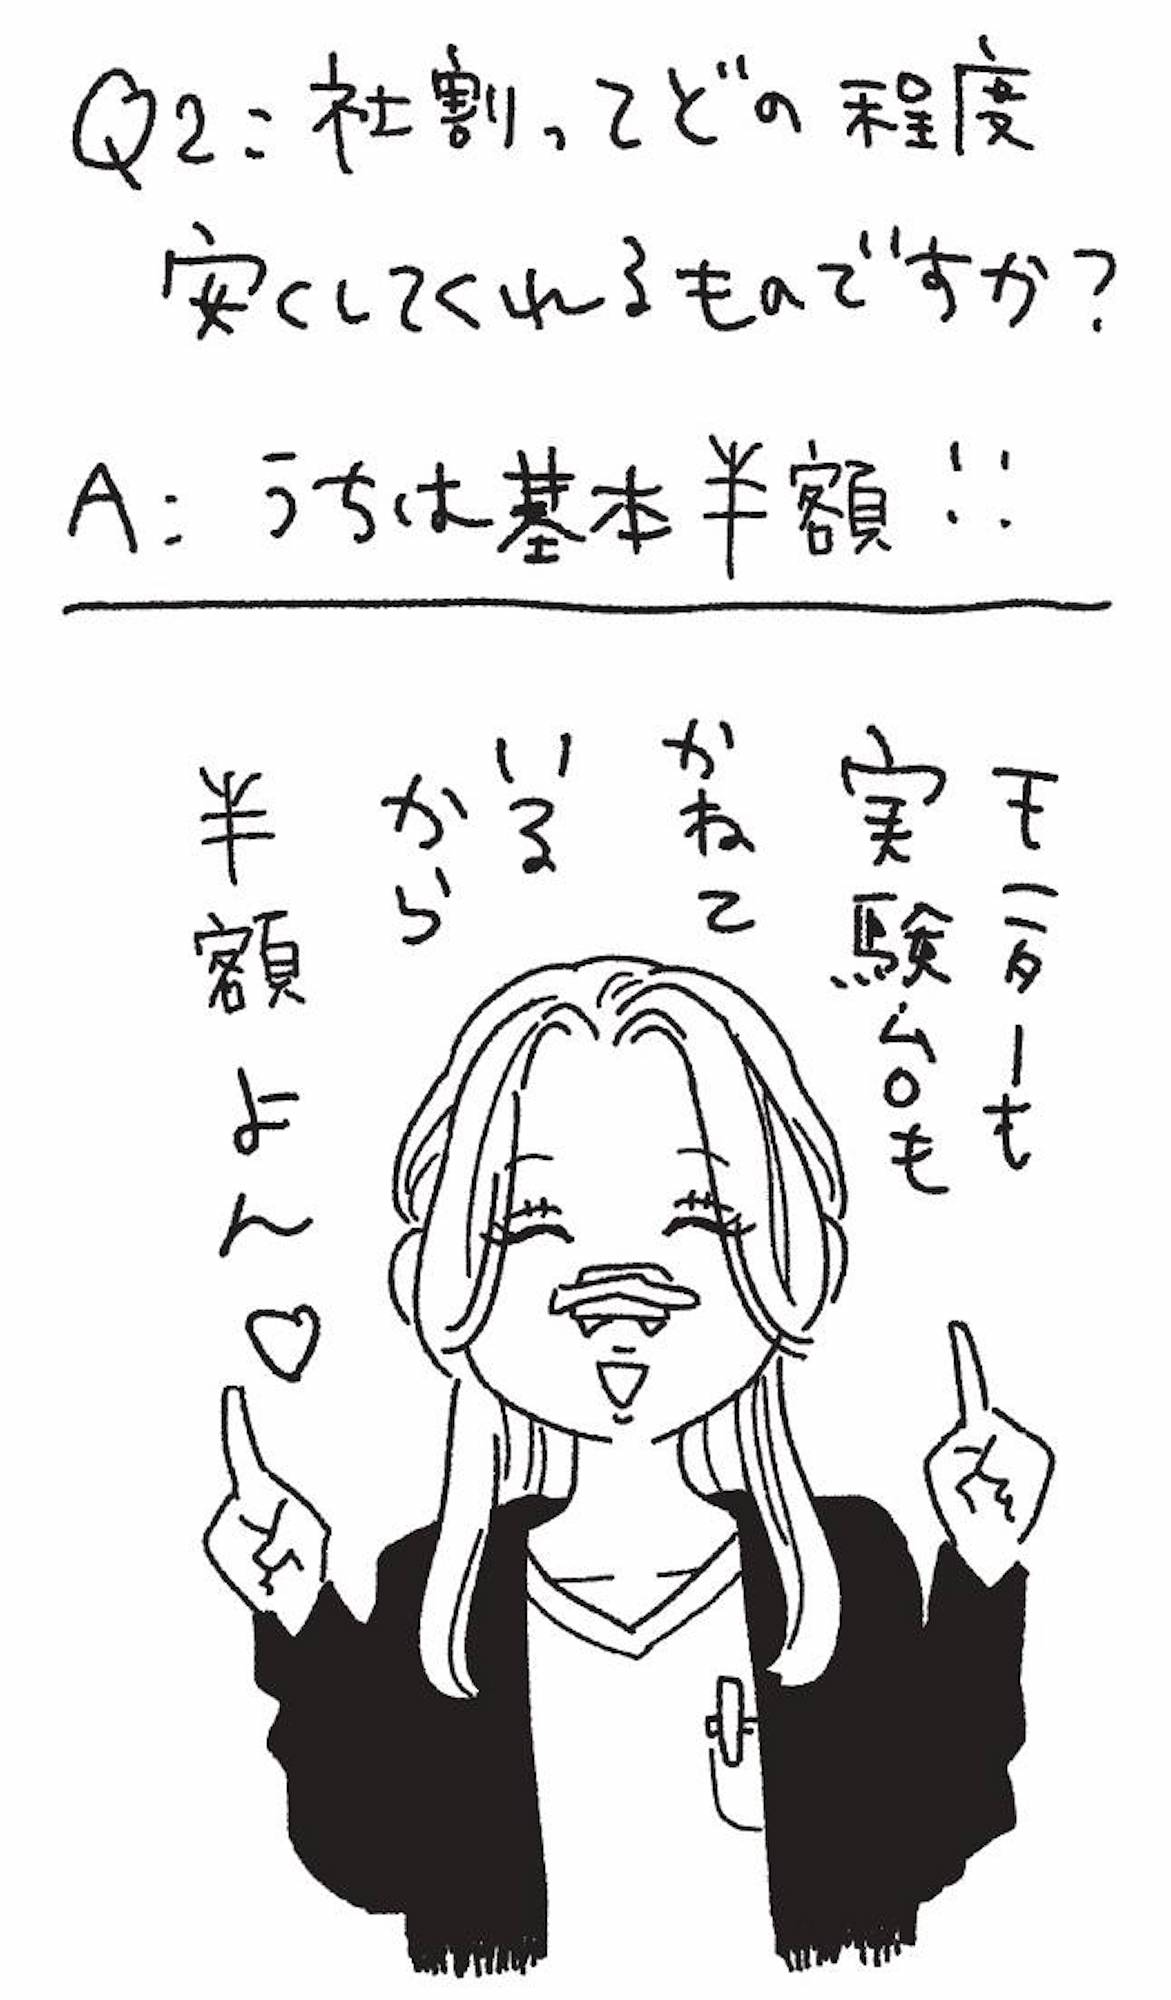 Q2:社割ってどの程度
安くしてくれるものですか?
A:うちは基本半額!!
モニターも
実験台も
かねて
いる
から
半額よん♡